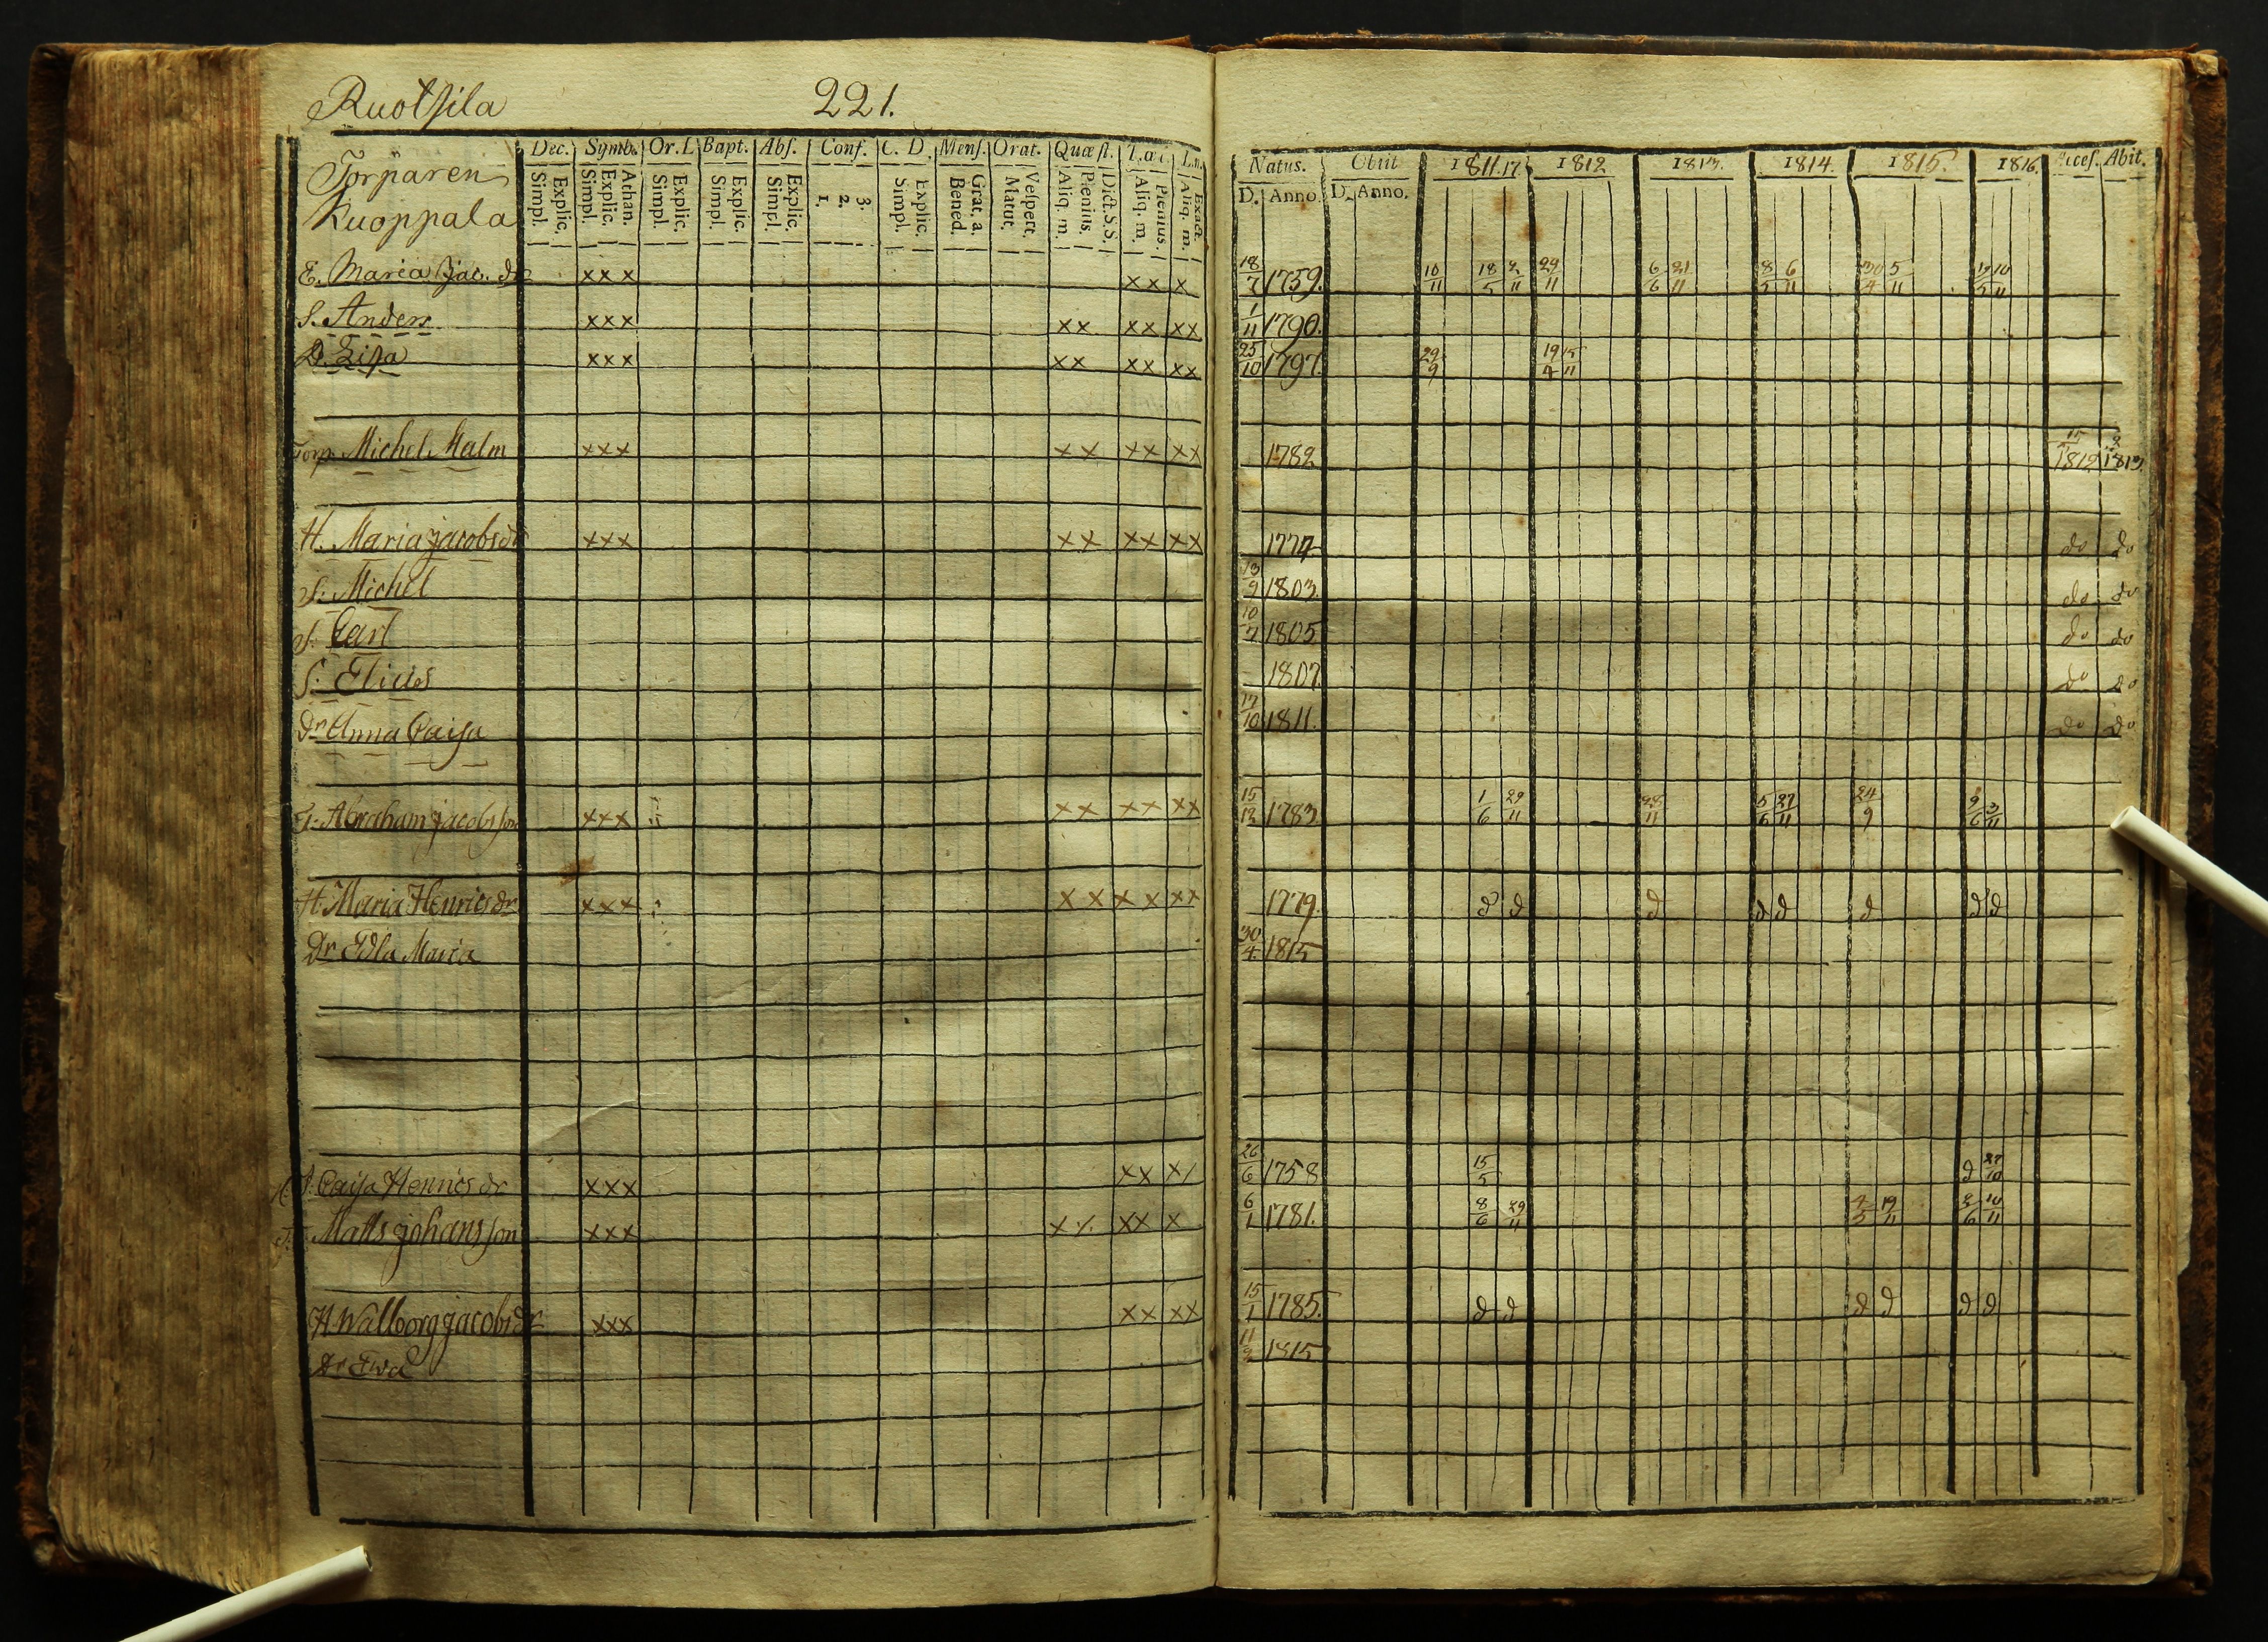 Ruotsila 221.
Torparen
Kuoppala
Dec. Symb. Or. D. Bapt. Abs. Conf. C. D. Mens. Orat. Quæst.
Explic. Simpl. Athan. Explic. Simpl. Explic. Simpl. Explic. Simpl. Explic. Simpl. 3. 2. 1. Explic. Simpl. Grat. a. Bened. Vespert. Matut. Dict. S.S. Plenius. Aliq. m. Plenius. Aliq. m. Exact. Aliq. m.
Natus. Obiit 1811.17 1812 1813. 1814. 1815. 1816. Acces. Abit.
D. Anno. D. Anno.
E. Maria Jac. dr xxx xx x 18/7 1759. 10/11 18/5 2/11 29/11 6/6 21/11 8/5 6/11 30/4 5/11 10/11
S. Anders xxx xx xx xx 1/11 1790.
D. Lisa xxx xx xx xx 25/10 1797. 29/9 19/4 15/11
Torp. Michel Malm xxx xx xx xx 1782 1812 1813
H. Maria Jacobsdr xxx xx xx xx 1774 do do
S. Michel 13/9 1803. do do
S. Carl 10/7 1805 do do
S. 1807 do do
Dr Anna Caisa 17/10 1811. do do
T. Abraham Jacobsson xxx xx xx xx 15/12 1783. 1/6 29/11 28/11 5/5 27/11 24/9 9/6 3/11
H. Maria Henricsdr xxx xx xx xx 1779. d d d d d d d d
Dr Edla Maria 30/4 1815
Caisa Henricsdr xxx xx x/ 26/6 1758 15/5 d 27/10
T. Matts Johansson xxx xx xx x 6/1 1781. 8/6 29/11 19/11 2/6 10/11
H. Walborg Jacobsdr xxx xx xx 15/1 1785. d d d d d d
Dr Ewa 1815